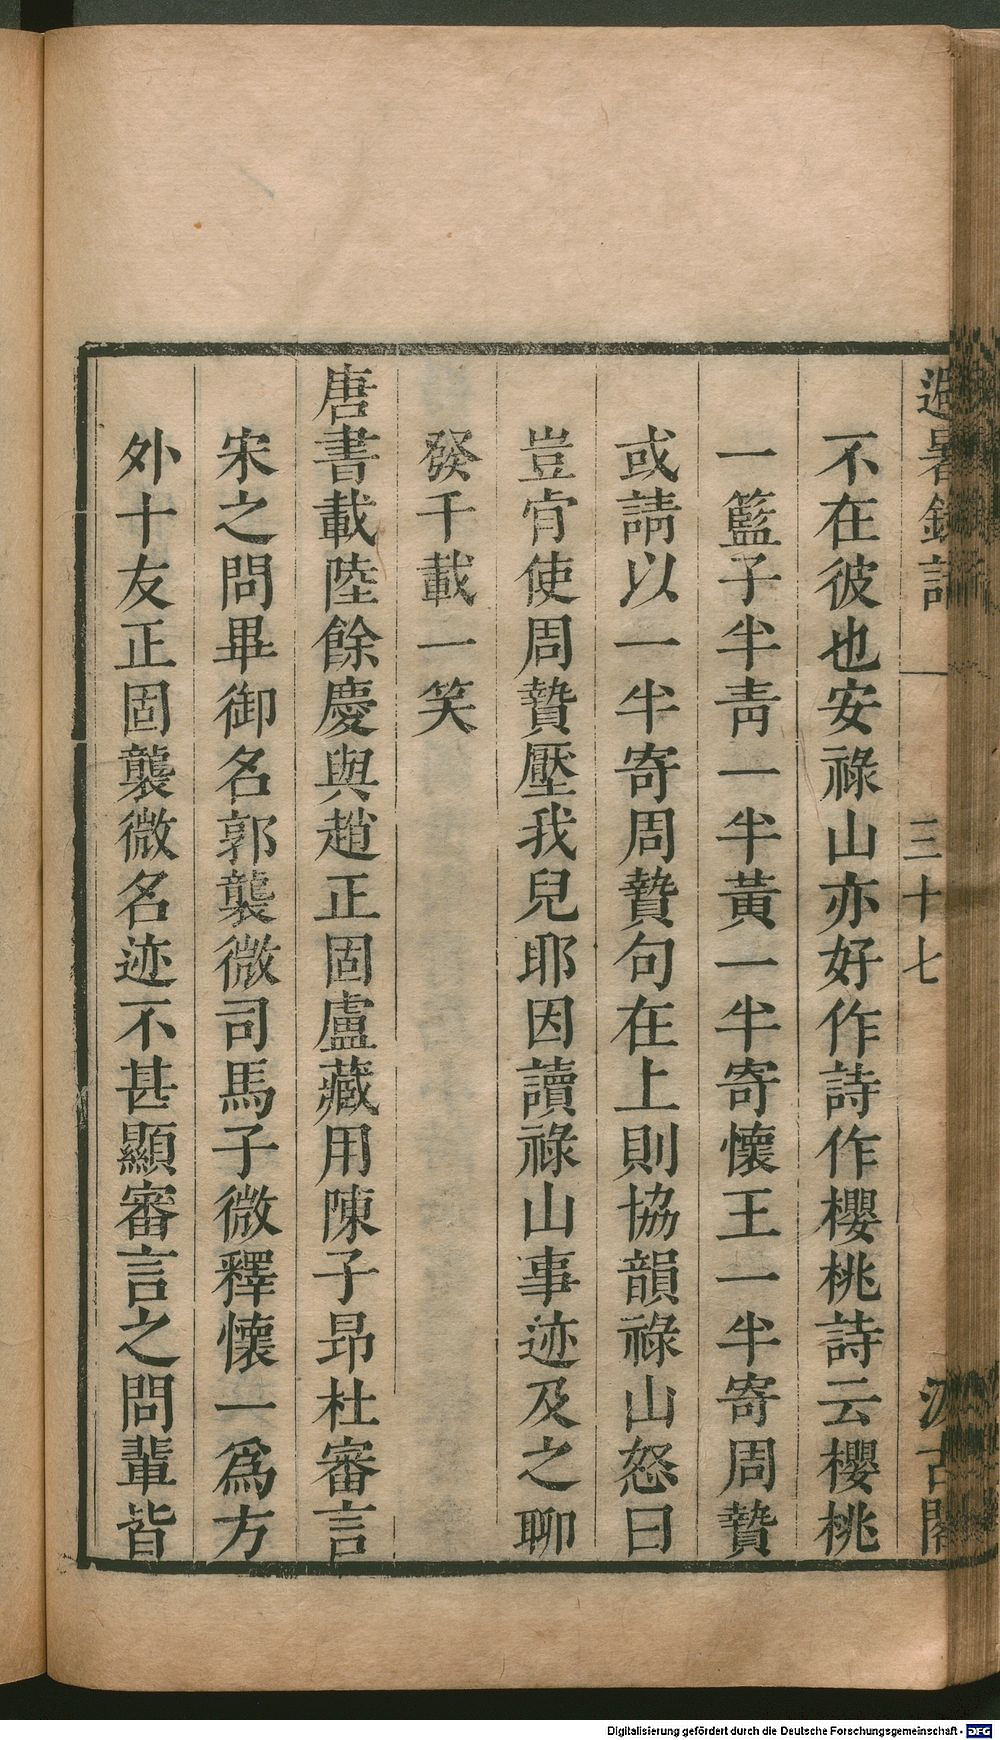 避暑錄話 三十七 汲古閣
不在彼也安祿山亦好作詩作櫻桃詩云櫻桃
一籃子半青一半黃一半寄懷王一半寄周贄
或請以一半寄周贄句在上則協韻祿山怒曰
豈肯使周贄壓我兒耶因讀祿山事迹及之聊
發千載一笑
唐書載陸餘慶與趙正固盧藏用陳子昂杜審言
宋之問畢御名郭襲微司馬子微釋懷一爲方
外十友正固襲微名迹不甚顯審言之問輩皆
Digitalisierung gefördert durch die Deutsche Forschungsgemeinschaft - DFG